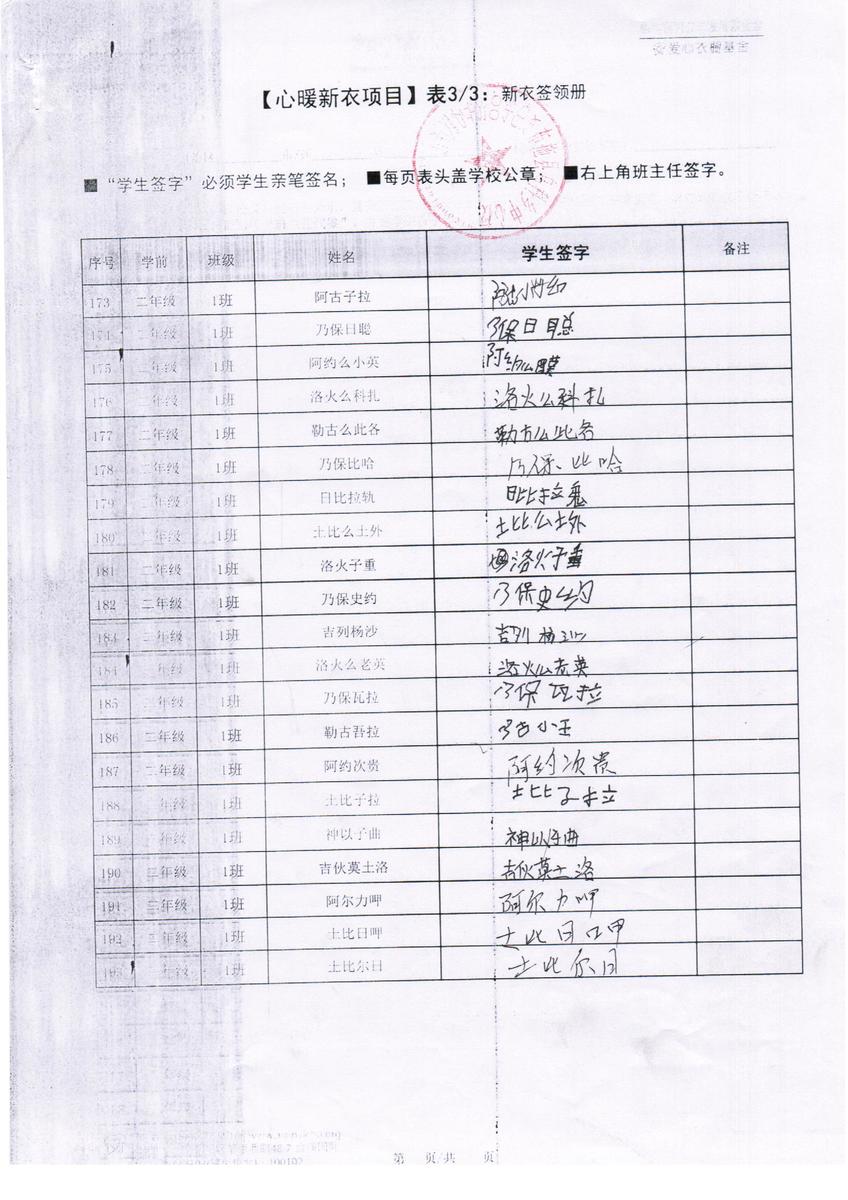 【心暖新衣项目】表3/3：新衣签领册
■“学生签字”必须学生亲笔签名；■每页表头盖学校公章；■右上角班主任签字。
序号 学前 班级 姓名 学生签字 备注
173 二年级 1班 阿古子拉
174 二年级 1班 乃保日聪 乃保日聪
175 二年级 1班 阿约么小英 阿约么
176 二年级 1班 洛火么科扎 洛火么科扎
177 二年级 1班 勒古么此各 勒古么此各
178 二年级 1班 乃保比哈 乃保比哈
179 二年级 1班 日比拉轨 日比拉
180 二年级 1班 土比么土外 土比么土外
181 二年级 1班 洛火子重 洛火子重
182 二年级 1班 乃保史约 乃保史约
183 二年级 1班 吉列杨沙 吉列杨沙
184 二年级 1班 洛火么老英 洛火么老英
185 二年级 1班 乃保瓦拉 乃保瓦拉
186 二年级 1班 勒古吾拉
187 二年级 1班 阿约次贵 阿约次贵
188 二年级 1班 土比子拉 土比子拉
189 二年级 1班 神以子曲 神以子曲
190 二年级 1班 吉伙莫土洛 吉伙莫土洛
191 二年级 1班 阿尔力呷 阿尔力呷
192 二年级 1班 土比日呷 土比日呷
193 二年级 1班 土比尔日 土比尔日
第 页/共 页